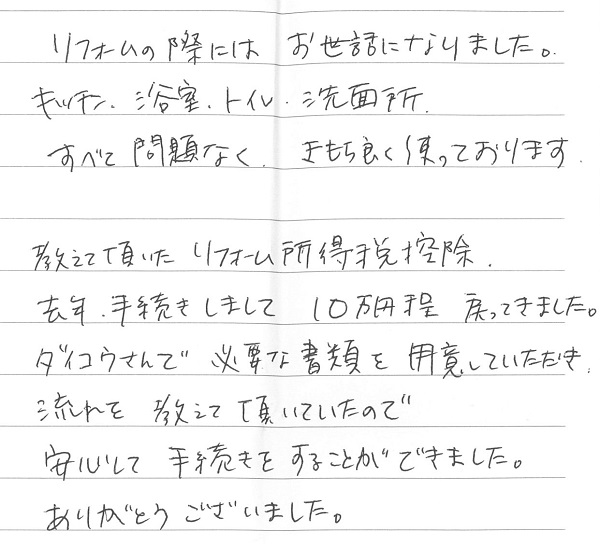 リフォームの際には お世話になりました。
キッチン、浴室、トイレ、洗面所、
すべて 問題なく、きもち良く使っております。
教えて頂いた リフォーム所得税控除、
去年、手続きしまして 10万円程 戻ってきました。
ダイコウさんで 必要な書類を 用意していただき、
流れを 教えて頂いていたので
安心して 手続きをすることができました。
ありがとうございました。